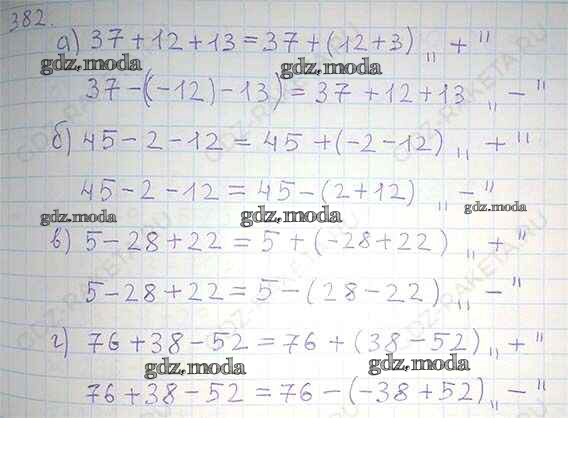 382.
а) 37 + 12 + 13 = 37 + (12 + 3) „ + "
gdz.moda gdz.moda
37 - ((-12) - 13) = 37 + 12 + 13 „ - "
б) 45 - 2 - 12 = 45 + (-2 - 12) „ + "
45 - 2 - 12 = 45 - (2 + 12) „ - "
gdz.moda gdz.moda gdz.moda
в) 5 - 28 + 22 = 5 + (-28 + 22) „ + "
5 - 28 + 22 = 5 - (28 - 22) „ - "
г) 76 + 38 - 52 = 76 + (38 - 52) „ + "
gdz.moda gdz.moda
76 + 38 - 52 = 76 - (-38 + 52) „ - "